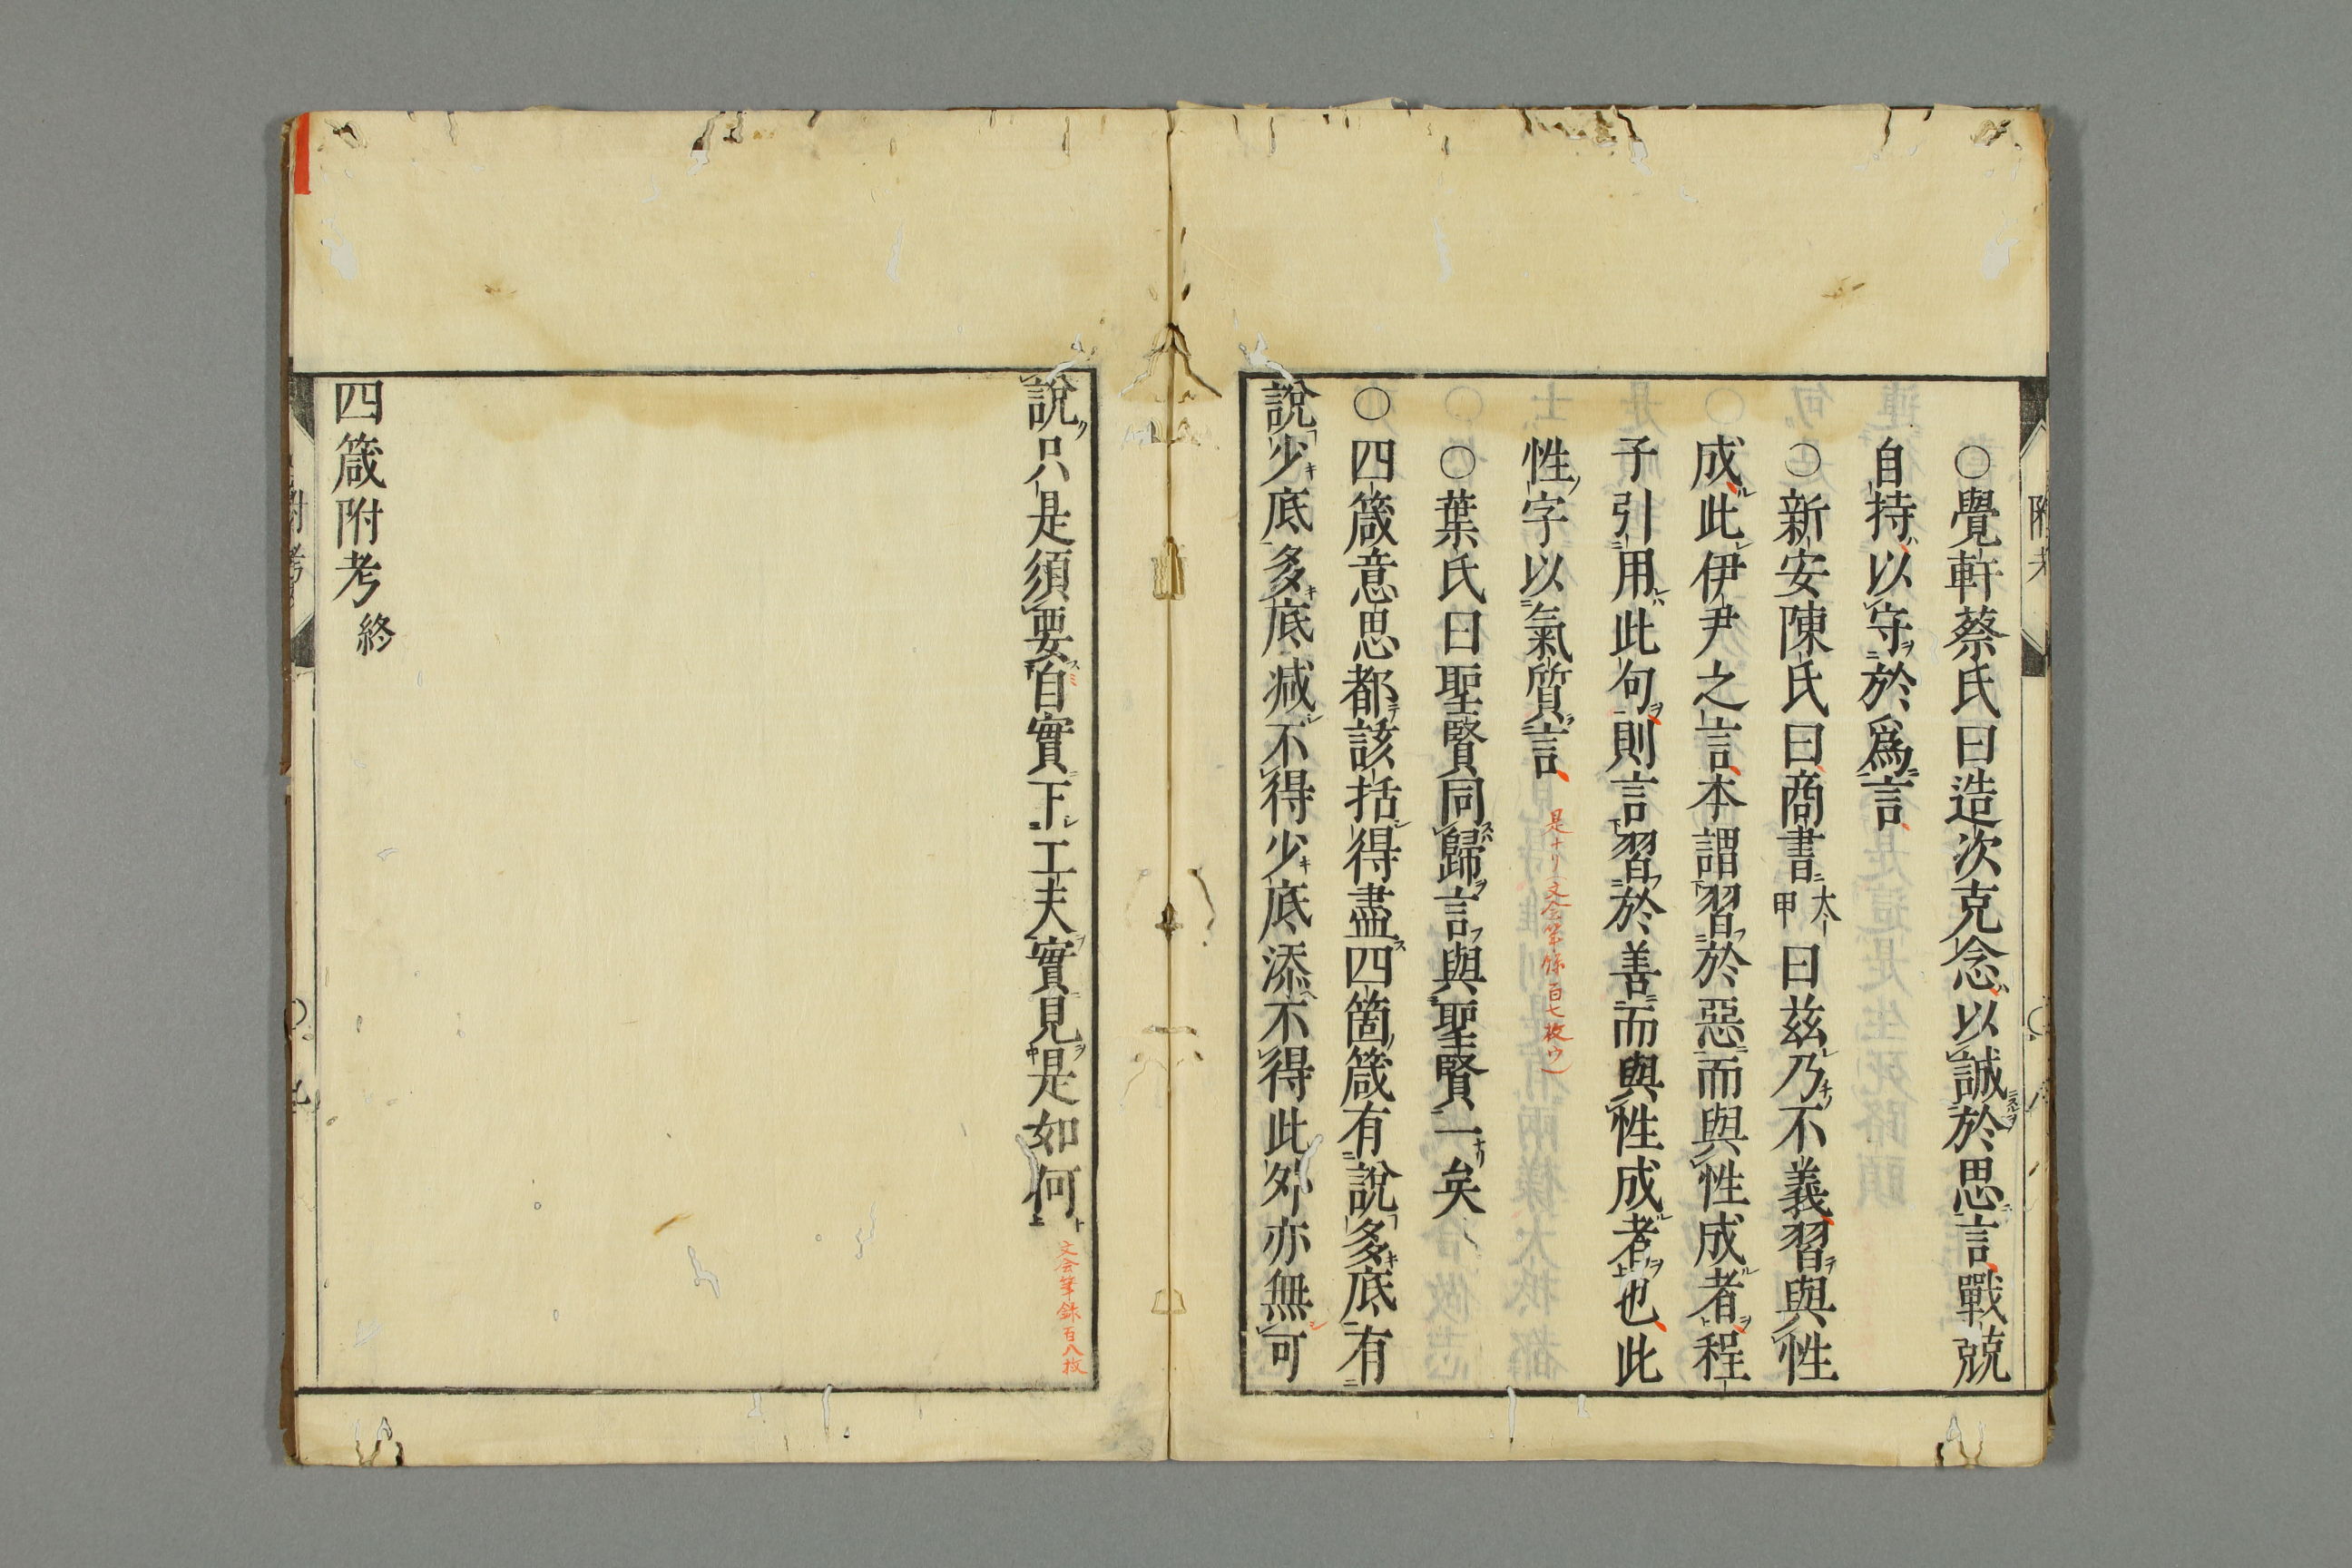 附考
○覺軒蔡氏曰造次克念以誠於思言戰兢
自持以守於爲言
○新安陳氏曰商書太甲曰兹乃不義習與性
成此伊尹之言本謂習於惡而與性成者程
子引用此句則言習於善而與性成者也此
性字以氣質言
是ナリ文会筆録百七枚ウ
○葉氏曰聖賢同歸言與聖賢一矣
○四箴意思都該括得盡四箇箴有說多底有
說少底多底減不得少底添不得此外亦無可
說只是須要自實下工夫實見是如何
文会筆録百八枚
四箴附考終
附考